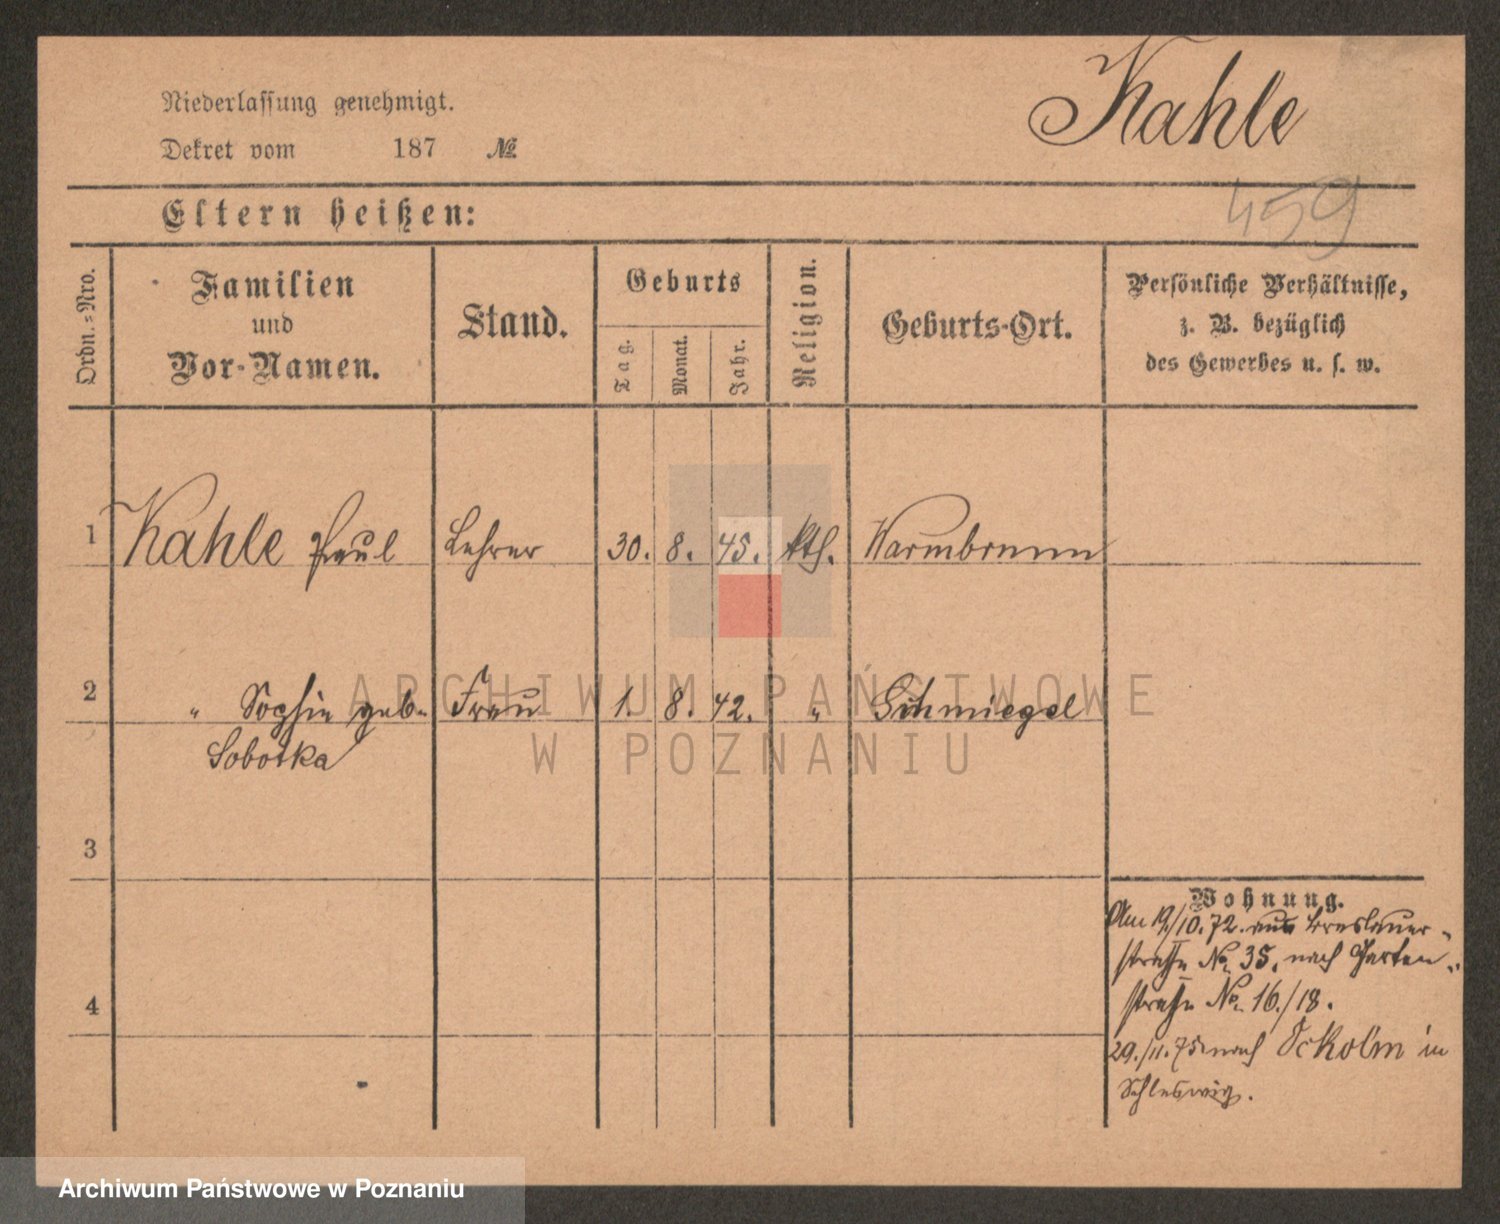 Niederlassung genehmigt.
Kahle
Dekret vom 187 №
459
Eltern heißen:
Ordn.=Nro.
Familien
und
Vor-Namen.
Stand.
Geburts
Tag.
Monat.
Jahr.
Religion.
Geburts-Ort.
Persönliche Verhältnisse,
z. B. bezüglich
des Gewerbes u. s. w.
1 Kahle Paul Lehrer 30. 8. 45. kth. Warmbrunn
2 " Sophie geb. Frau 1. 8. 42. " Schmiegel
Sobotka
3
4
Wohnung.
Am 19/10.72. aus Breslauer-
straße No. 35. nach Garten-
straße No. 16./18.
29./11.75 nach Ockolm in
Schleswig.
ARCHIWUM PAŃSTWOWE
W POZNANIU
Archiwum Państwowe w Poznaniu